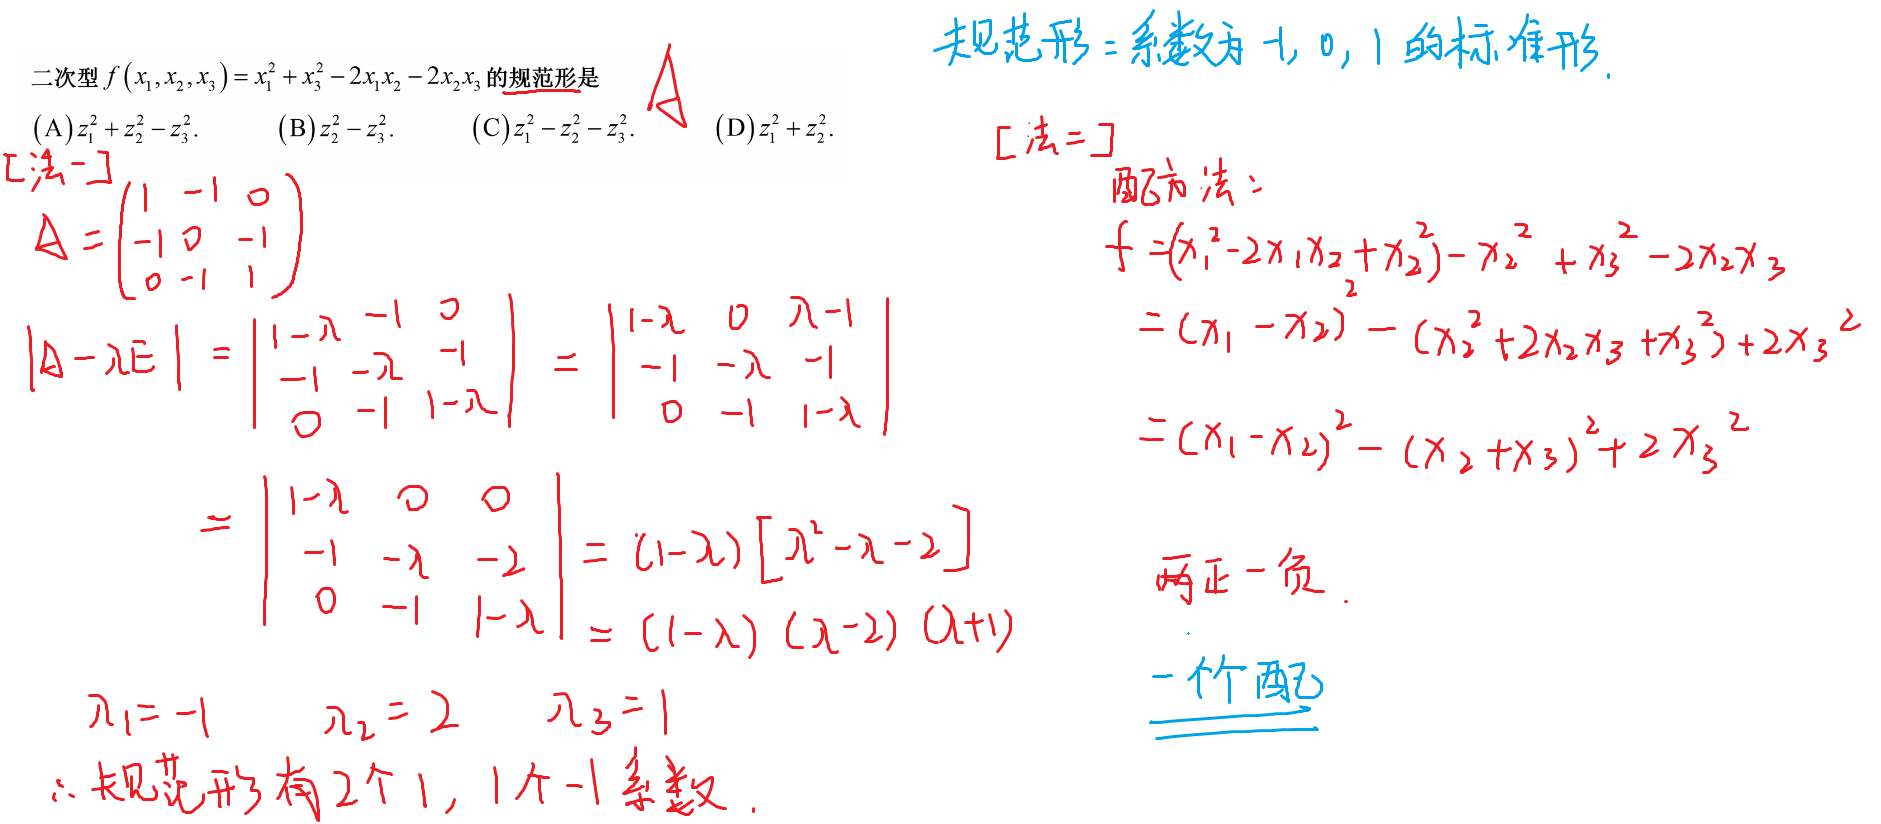 规范形=系数为-1, 0, 1的标准形.
二次型 f(x₁, x₂, x₃) = x₁² + x₃² − 2x₁x₂ − 2x₂x₃ 的规范形是
A
(A) z₁² + z₂² − z₃². (B) z₂² − z₃². (C) z₁² − z₂² − z₃². (D) z₁² + z₂².
[法一]
A = ( 1 -1 0
-1 0 -1
0 -1 1 )
|A-λE| = | 1-λ -1 0
-1 -λ -1
0 -1 1-λ | = | 1-λ 0 λ-1
-1 -λ -1
0 -1 1-λ |
= | 1-λ 0 0
-1 -λ -2
0 -1 1-λ | = (1-λ)[λ²-λ-2]
= (1-λ)(λ-2)(λ+1)
λ₁=-1 λ₂=2 λ₃=1
∴规范形有2个1, 1个-1系数.
[法二]
配方法:
f =(x₁²-2x₁x₂+x₂²)-x₂²+x₃²-2x₂x₃
=(x₁-x₂)²-(x₂²+2x₂x₃+x₃²)+2x₃²
=(x₁-x₂)²-(x₂+x₃)²+2x₃²
两正一负.
一个个配